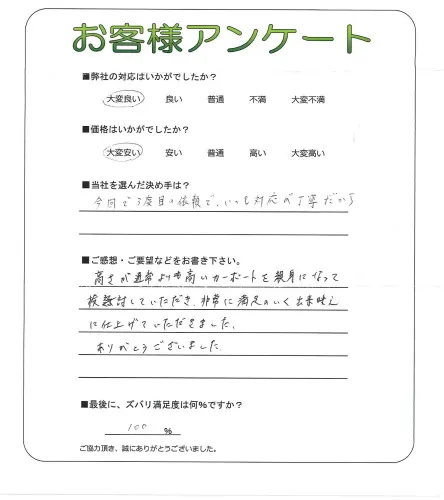 お客様アンケート
■弊社の対応はいかがでしたか？
大変良い 良い 普通 不満 大変不満
■価格はいかがでしたか？
大変安い 安い 普通 高い 大変高い
■当社を選んだ決め手は？
今回で3度目の依頼で、いつも対応が丁寧だから
■ご感想・ご要望などをお書き下さい。
高さが通常よりも高いカーポートを親身になって
検討していただき、非常に満足のいく出来映え
に仕上げていただきました。
ありがとうございました
■最後に、ズバリ満足度は何%ですか？
100 %
ご協力頂き、誠にありがとうございました。